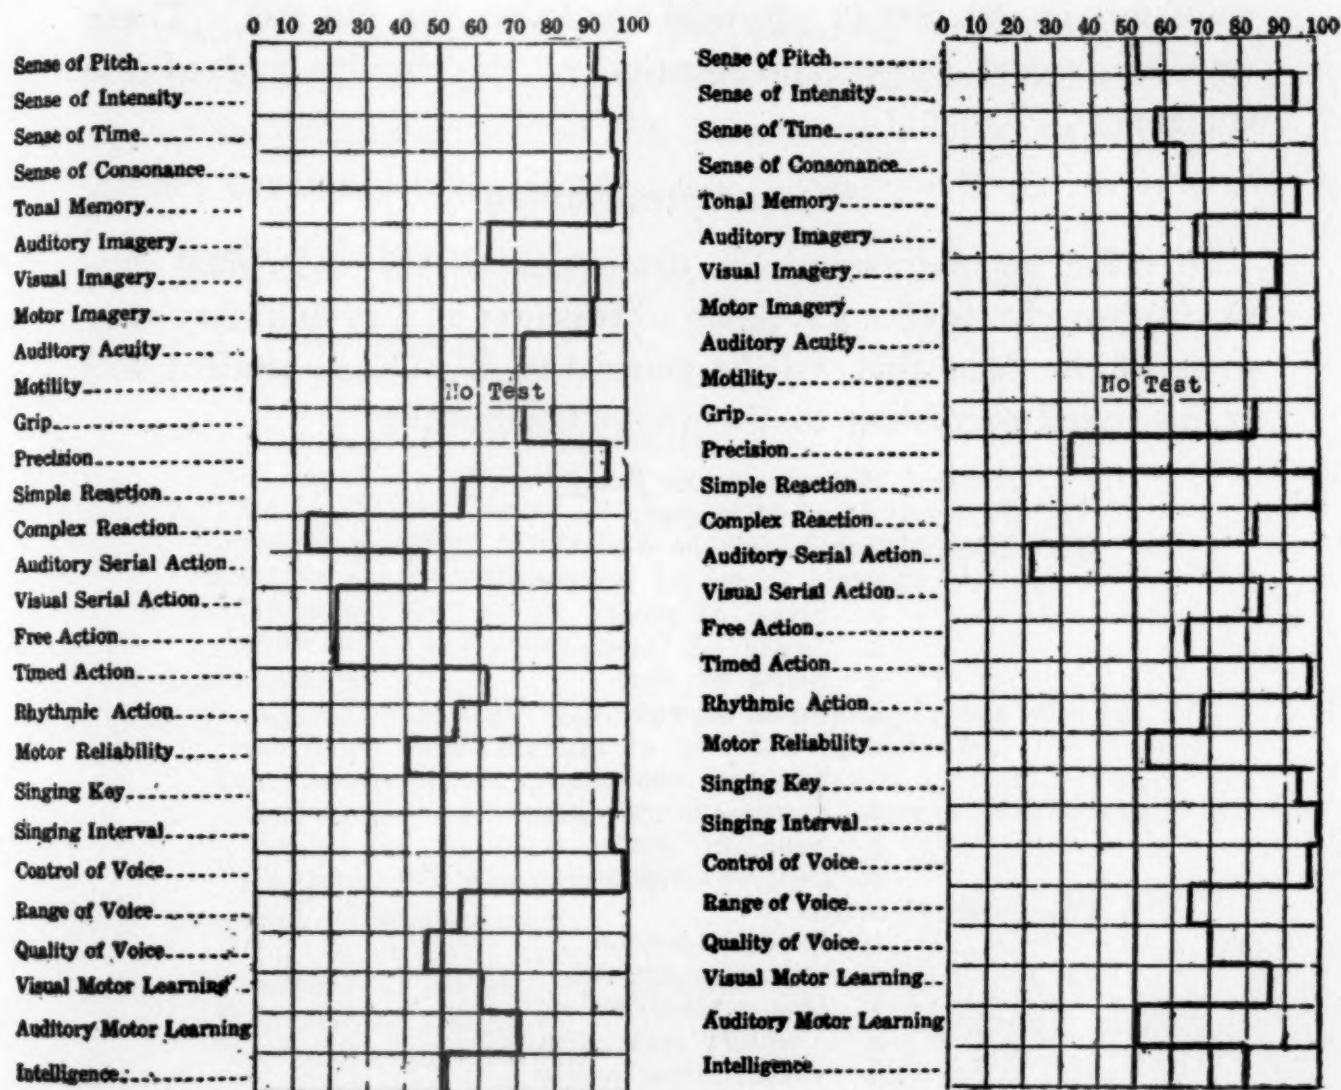 0 10 20 30 40 50 60 70 80 90 100
Sense of Pitch
Sense of Intensity
Sense of Time
Sense of Consonance
Tonal Memory
Auditory Imagery
Visual Imagery
Motor Imagery
Auditory Acuity
Motility
No Test
Grip
Precision
Simple Reaction
Complex Reaction
Auditory Serial Action
Visual Serial Action
Free Action
Timed Action
Rhythmic Action
Motor Reliability
Singing Key
Singing Interval
Control of Voice
Range of Voice
Quality of Voice
Visual Motor Learning
Auditory Motor Learning
Intelligence
0 10 20 30 40 50 60 70 80 90 100
Sense of Pitch
Sense of Intensity
Sense of Time
Sense of Consonance
Tonal Memory
Auditory Imagery
Visual Imagery
Motor Imagery
Auditory Acuity
Motility
No Test
Grip
Precision
Simple Reaction
Complex Reaction
Auditory Serial Action
Visual Serial Action
Free Action
Timed Action
Rhythmic Action
Motor Reliability
Singing Key
Singing Interval
Control of Voice
Range of Voice
Quality of Voice
Visual Motor Learning
Auditory Motor Learning
Intelligence